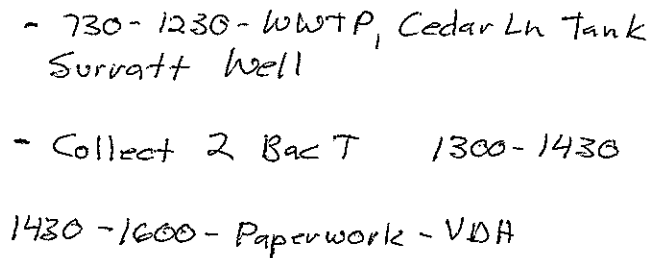 - 730-1230-WWTP, Cedar Ln Tank
Surratt Well
- Collect 2 Bac T 1300-1430
1430-1600-Paperwork-VDH